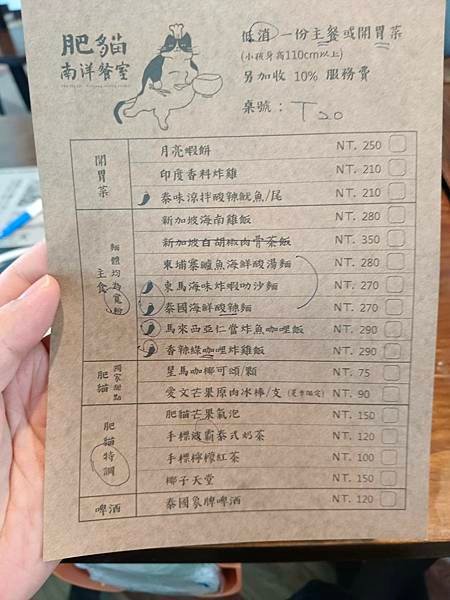 肥貓
南洋餐室
低消一份主餐或開胃菜
(小孩身高110cm以上)
另加收 10% 服務費
桌號：T20
開胃菜
月亮蝦餅 NT. 250
印度香料炸雞 NT. 210
泰味涼拌酸辣魷魚/尾 NT. 210
主食
麵體均為寬粉
新加坡海南雞飯 NT. 280
新加坡白胡椒肉骨茶飯 NT. 350
柬埔寨鱸魚海鮮酸湯麵 NT. 280
東馬海味炸蝦叻沙麵 NT. 270
泰國海鮮酸辣麵 NT. 270
馬來西亞仁當炸魚咖哩飯 NT. 290
香辣綠咖哩炸雞飯 NT. 290
肥貓
獨家甜點
星馬咖椰可頌/顆 NT. 75
愛文芒果原肉冰棒/支 (夏季限定) NT. 90
肥貓特調
肥貓芒果氣泡 NT. 150
手標波霸泰式奶茶 NT. 120
手標檸檬紅茶 NT. 100
椰子天堂 NT. 150
啤酒
泰國象牌啤酒 NT. 120